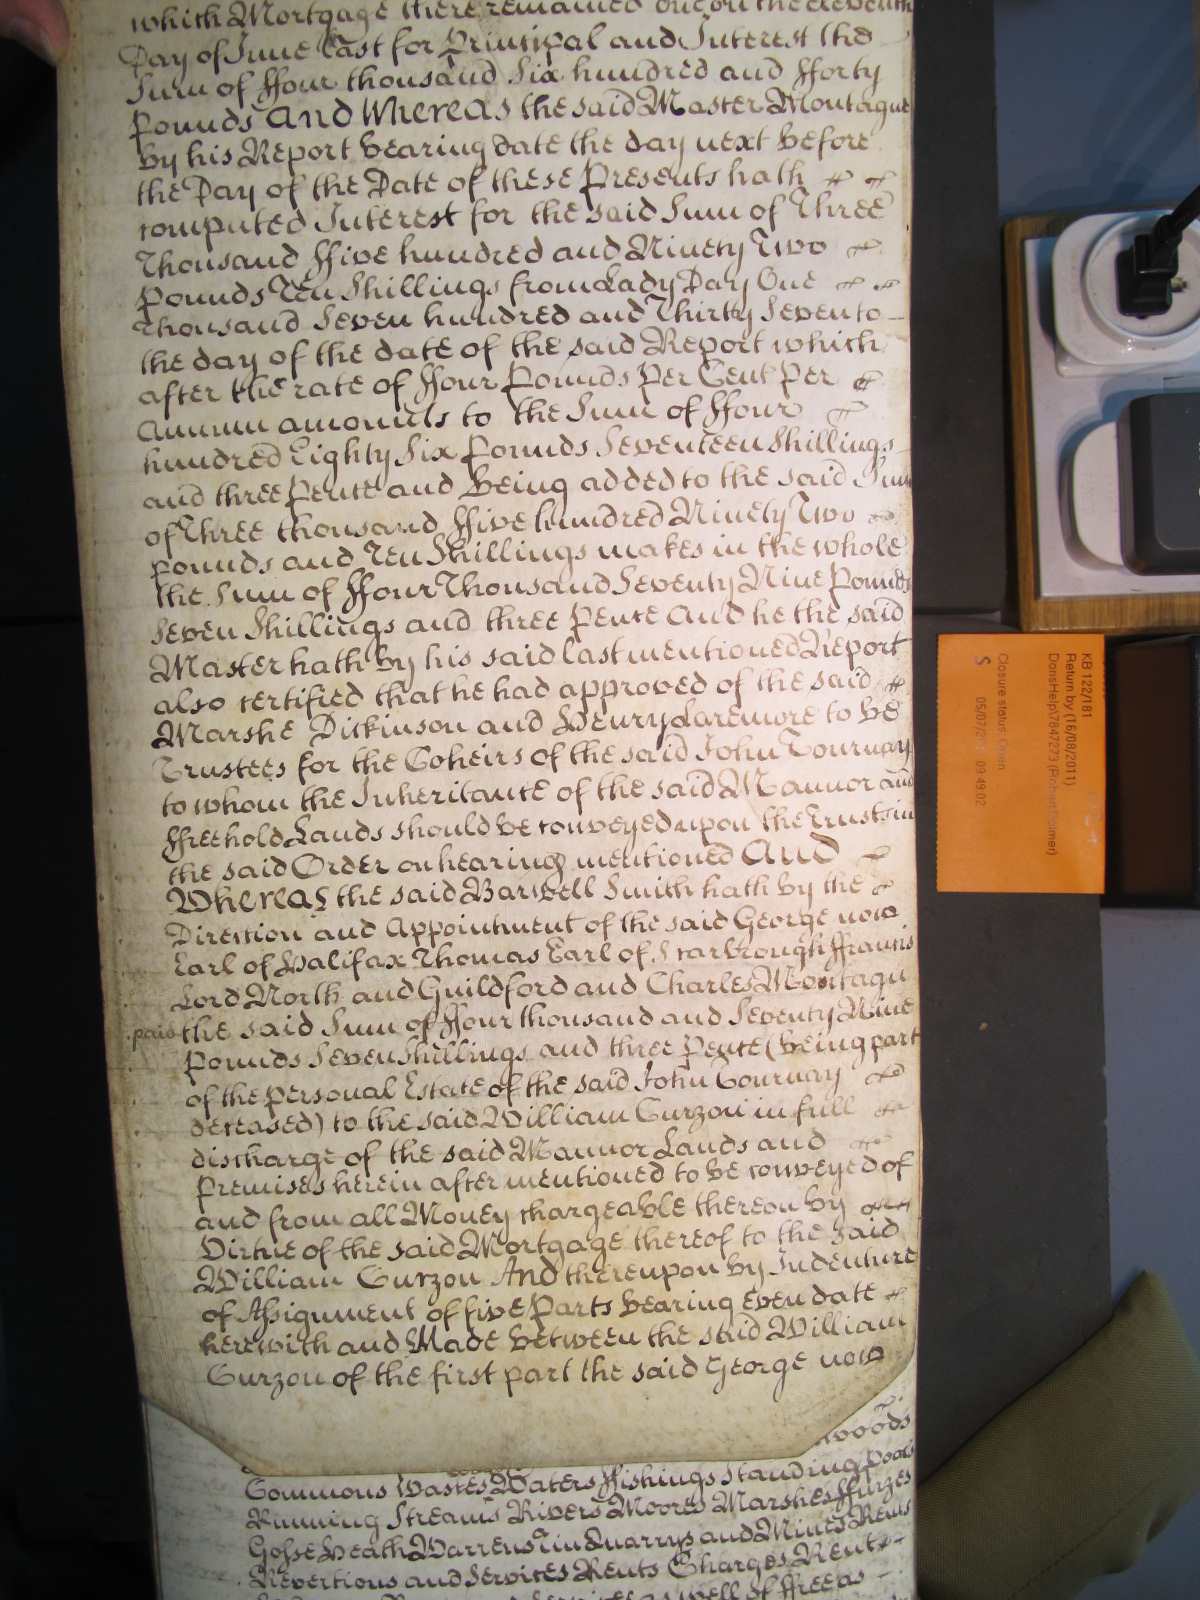 which Mortgage there remained due on the eleventh
Day of June Last for Principal and Interest the
Sum of ffour thousand Six hundred and fforty
pounds And Whereas the said Master Montague
by his Report bearing date the day next before
the Day of the Date of these Presents hath
computed Interest for the said Sum of Three
Thousand ffive hundred and Ninety Two
Pounds Ten Shillings from Lady Day One
Thousand Seven hundred and Thirty Seven to
the day of the date of the said Report which
after the rate of ffour Pounds Per Cent Per
Annum amounts to the Sum of ffour
hundred Eighty Six Pounds Seventeen Shillings
and three Pence and being added to the said Sum
of Three thousand ffive hundred Ninety Two
pounds and Ten Shillings makes in the whole
the Sum of ffour Thousand Seventy Nine Pounds
Seven Shillings and three Pence And he the said
Master hath by his said last mentioned Report
also certified that he had approved of the said
Marshe Dickinson and Henry to be
Trustees for the Coheirs of the said John Gournay
to whom the Inheritance of the said Mannor and
ffreehold Lands should be conveyed upon the Trusts in
the said Order on hearing mentioned And
Whereas the said Barwell Smith hath by the
Direction and Appointment of the said George now
Earl of Halifax Thomas Earl of Scarbrough ffrancis
Lord North and Guildford and Charles Montagu
paid the said Sum of ffour thousand and Seventy Nine
Pounds Seven Shillings and three Pence (being part
of the personal Estate of the said John Gournay
deceased) to the said William Curzon in full
discharge of the said Mannor Lands and
Premises herein after mentioned to be conveyed of
and from all Money chargeable thereon by
Virtue of the said Mortgage thereof to the said
William Curzon And thereupon by Indenture
of Assignment of five Parts bearing even date
herewith and Made between the said William
Curzon of the first part the said George now
woods
Commons Wastes Waters ffishings Standing Pools
Running Streams Rivers Moores Marshes ffurzes
Gosse Heath Warrens Tin Quarrys and Mines Rents
Revertions and Services Rents Charges Rents
as well of ffree as
KB 122/181
Return by (16/08/2011)
DorisHelp\7847273 (Robert Palmer)
Closure status: Open
S 09:49:02